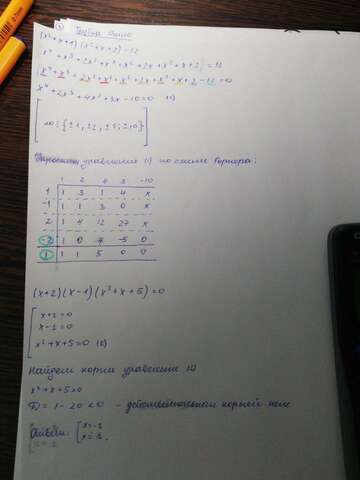 (x²+x+1)(x²+x+2)=12
x⁴+x³+2x²+x³+x²+2x+x²+x+2=12
x⁴+x³+2x²+x³+x²+2x+x²+x+2-12=0
x⁴+2x³+4x²+3x-10=0 (1)
10: {±1, ±2, ±5, ±10}
уравнение (1) по схеме Горнера:
1 2 4 3 -10
1 1 3 1 4 x
-1 1 1 3 0 x
2 1 4 12 27 x
-2 1 0 4 -5 0
1 1 1 5 0 0
(x+2)(x-1)(x²+x+5)=0
x+2=0
x-1=0
x²+x+5=0 (2)
Найдем корни уравнения (2)
x²+x+5=0
D = 1-20<0 - действительных корней нет
Ответ: x=-2
x=1